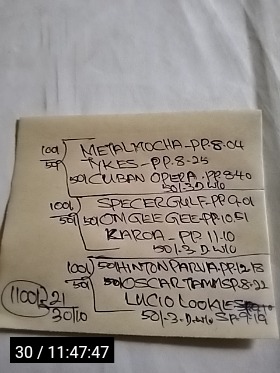 100/ METALMOCHA - PP. 8.04
50/ TYKES - PP. 8-25
50/ CUBAN OPERA. PP. 840
50/-3-D.W/U
100/ SPECER GULF-PP 9.01
50/ 50/ONGLEE GEE-PP.10.51
KAROA - PP. 11.10
50/-3 D.W/U
100/ 50/HINTON PARVA-PP.12.13
50/ 50/OSCAR SP.8-22
LUCIO LOOKLES
50/-3-D.W/U SP.9-19
1100/2 21
30/10
30 / 11:47:47